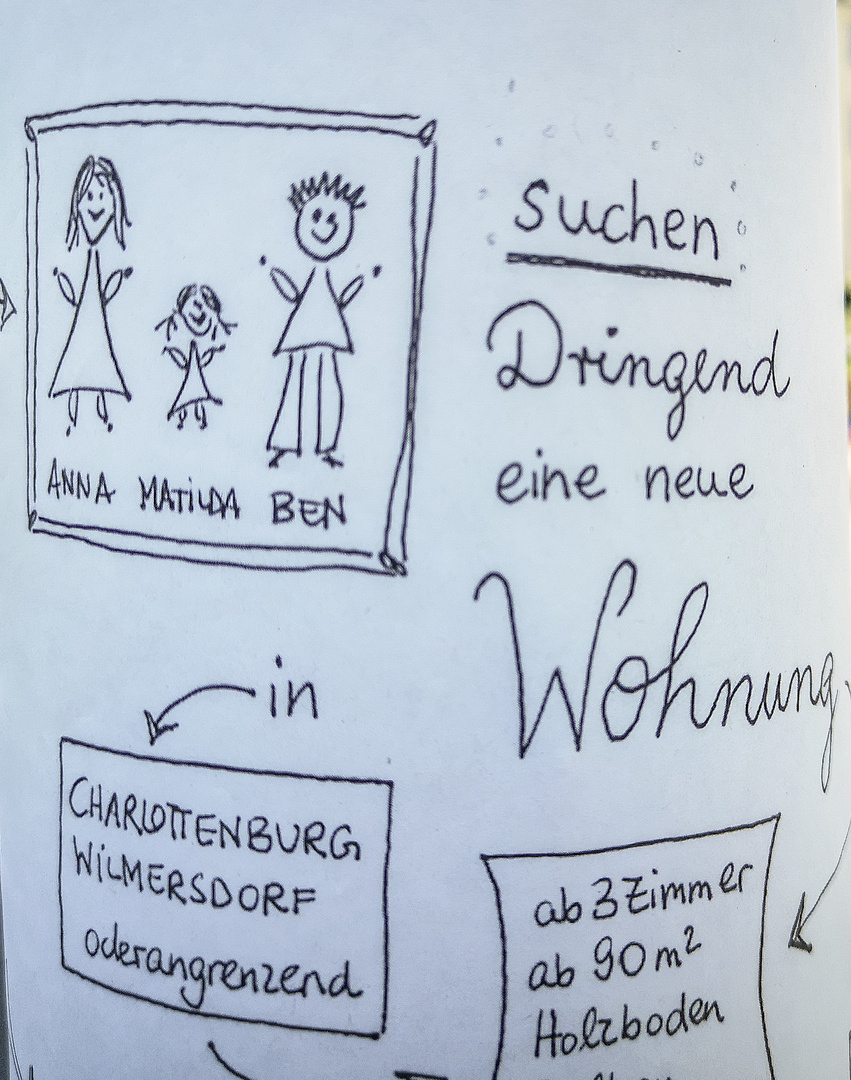 suchen
Dringend
eine neue
Wohnung
ANNA MATILDA BEN
in
CHARLOTTENBURG
WILMERSDORF
oder angrenzend
ab 3 Zimmer
ab 90 m²
Holzboden